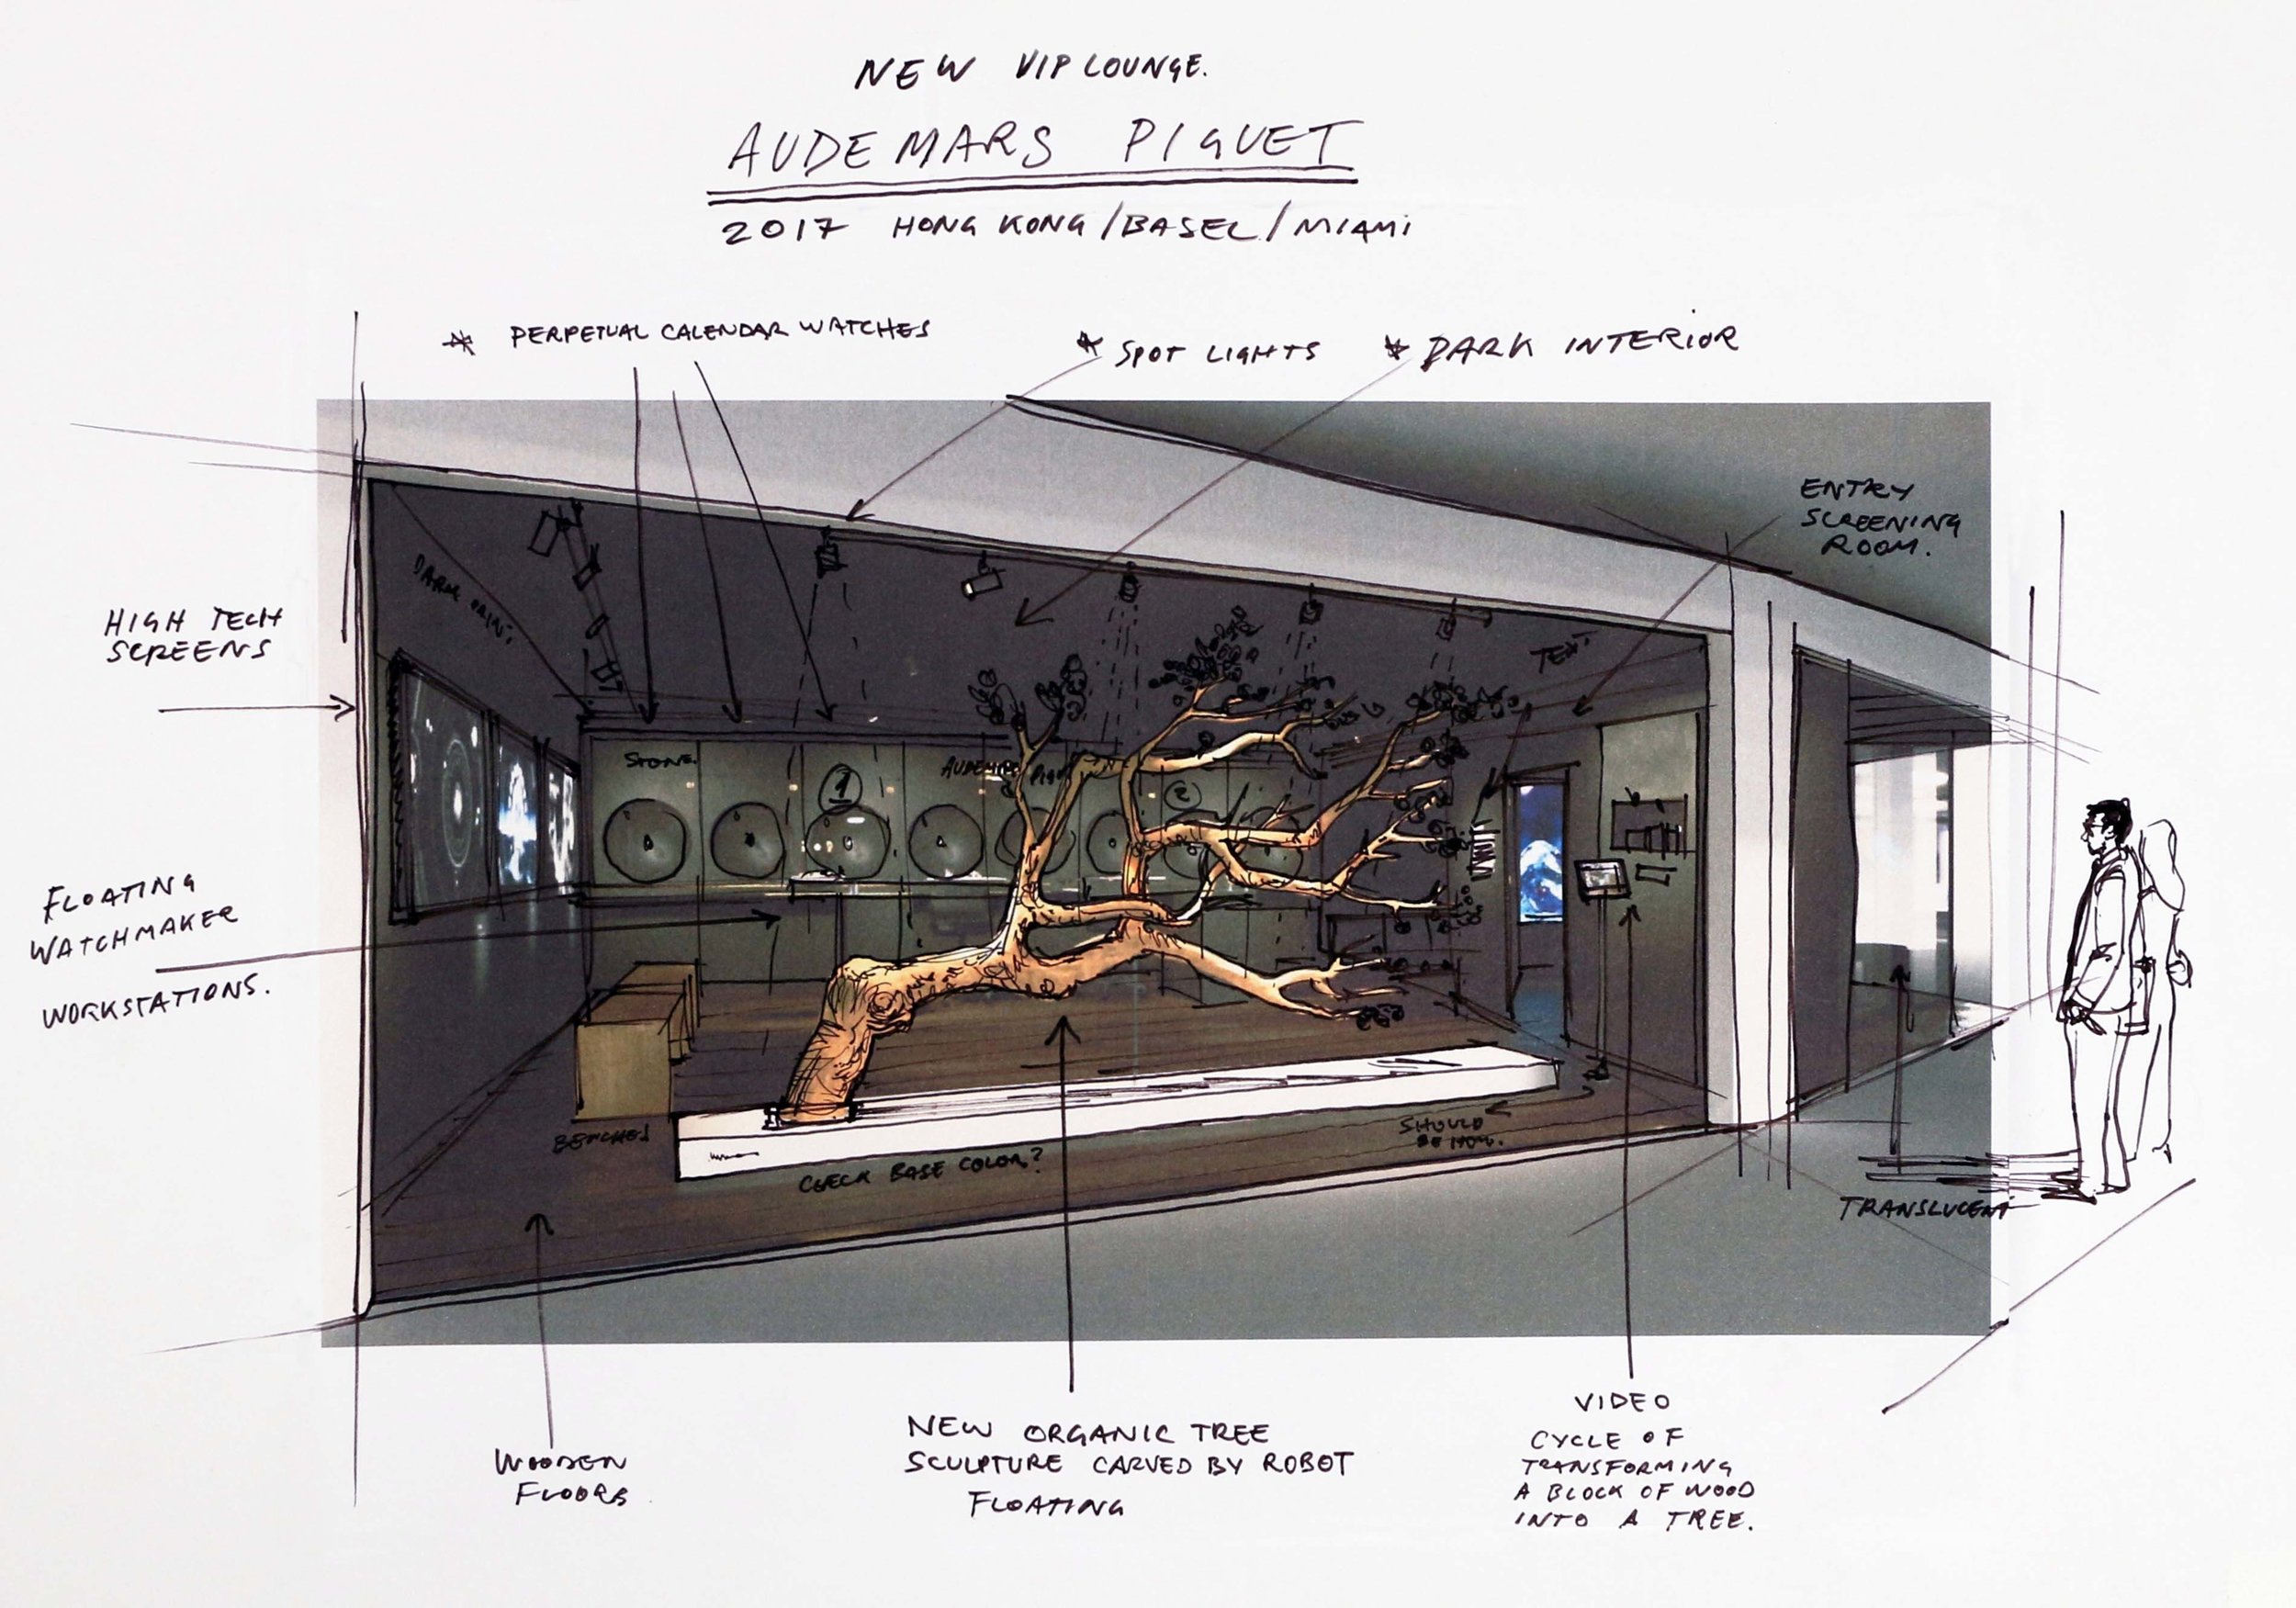 NEW VIP LOUNGE.
AUDEMARS PIGUET
2017 HONG KONG/BASEL/MIAMI
* PERPETUAL CALENDAR WATCHES
* SPOT LIGHTS
* DARK INTERIOR
ENTRY
SCREENING
ROOM.
HIGH TECH
SCREENS
DARK
TEXT
STONE
1
AUDEMARS PIGUET
2
FLOATING
WATCHMAKER
WORKSTATIONS.
BENCHES
CHECK BASE COLOR?
SHOULD
BE
TRANSLUCENT
WOODEN
FLOORS
NEW ORGANIC TREE
SCULPTURE CARVED BY ROBOT
FLOATING
VIDEO
CYCLE OF
TRANSFORMING
A BLOCK OF WOOD
INTO A TREE.